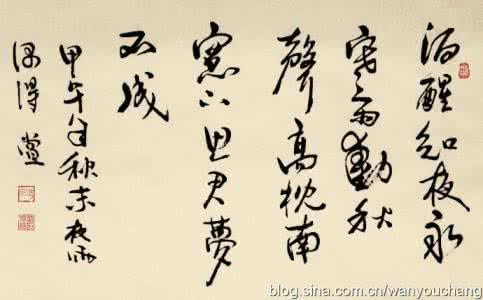 酒醒知夜永
寒雨動秋
聲高枕南
窓下思君夢
不成
甲午年秋末夜雨
偶得
blog.sina.com.cn/wanyouchang